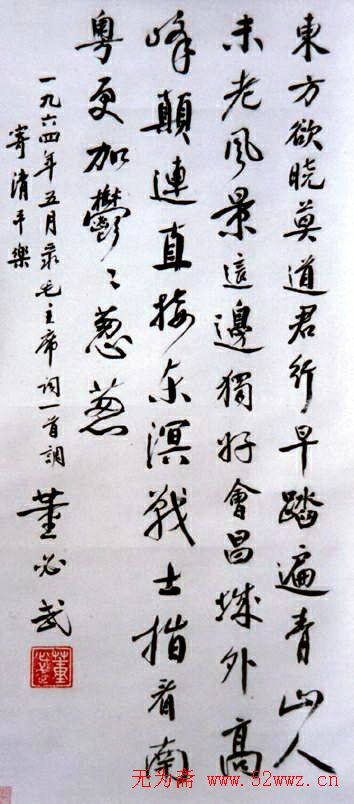 東方欲曉莫道君行早踏遍青山人
未老風景這邊獨好會昌城外高
峰顛連直接東溟戰士指看南
粵更加鬱〻蔥蔥
一九六四年五月录毛主席词一首調
寄清平樂
董必武
无为斋 www.52wwz.cn